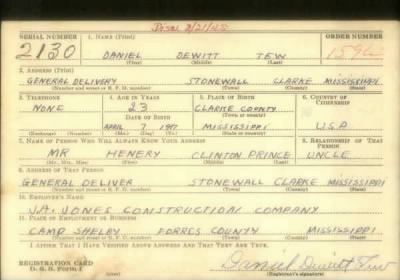 Died 3/21/45
SERIAL NUMBER 1. NAME (Print) ORDER NUMBER
2130 DANIEL DEWITT TEW
(First) (Middle) (Last)
2. ADDRESS (Print)
GENERAL DELIVERY STONEWALL CLARKE MISSISSIPPI
(Number and street or R. F. D. number) (Town) (County) (State)
3. TELEPHONE 4. AGE IN YEARS 5. PLACE OF BIRTH 6. COUNTRY OF CITIZENSHIP
NONE 23 CLARKE COUNTY
DATE OF BIRTH (Town or county)
APRIL 7 1917 MISSISSIPPI U.S.A
(Exchange) (Number) (Mo.) (Day) (Yr.) (State or country)
7. NAME OF PERSON WHO WILL ALWAYS KNOW YOUR ADDRESS 8. RELATIONSHIP OF THAT PERSON
MR HENERY CLINTON PRINCE UNCLE
(Mr., Mrs., Miss) (First) (Middle) (Last)
9. ADDRESS OF THAT PERSON
GENERAL DELIVER STONEWALL CLARKE MISSISSIPPI
(Number and street or R. F. D. number) (Town) (County) (State)
10. EMPLOYER'S NAME
J.A. JONES CONSTRUCTION COMPANY
11. PLACE OF EMPLOYMENT OR BUSINESS
CAMP SHELBY FORRES COUNTY MISSISSIPPI
(Number and street or R. F. D. number) (Town) (County) (State)
I AFFIRM THAT I HAVE VERIFIED ABOVE ANSWERS AND THAT THEY ARE TRUE.
REGISTRATION CARD
D. S. S. FORM 1 Daniel Dewitt Tew
(Registrant's signature)